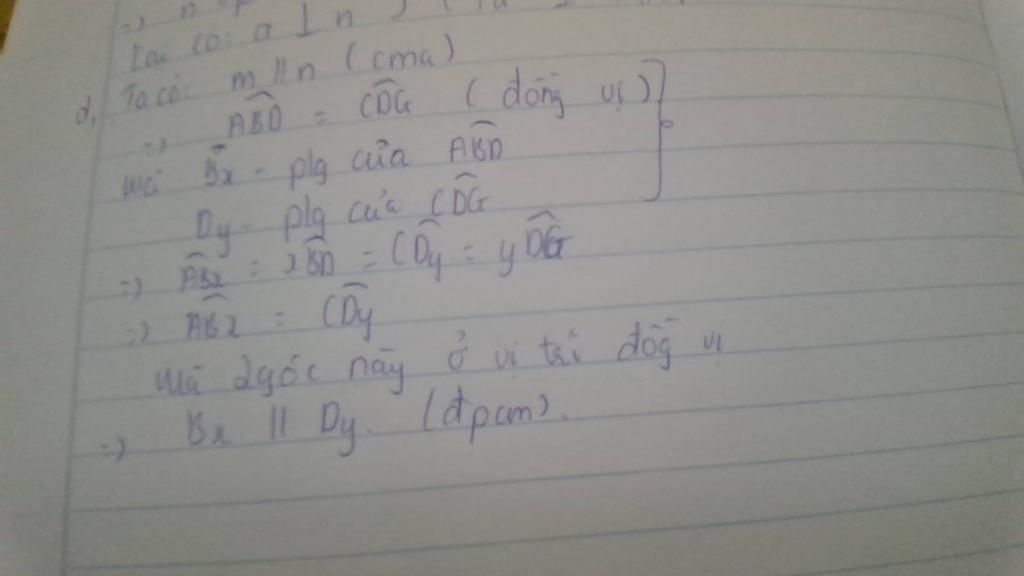 =) n
Lại có: a ⊥ n
d, Ta có: m // n (cma)
=) ABD̂ = CDĜ (đồng vị)
mà Bx - plg của ABD̂
Dy - plg của CDĜ
=) ABx̂ = xBD̂ = CDŷ = yDĜ
=) ABx̂ = CDŷ
mà 2 góc này ở vị trí đồg vị
=) Bx // Dy. (đpcm).